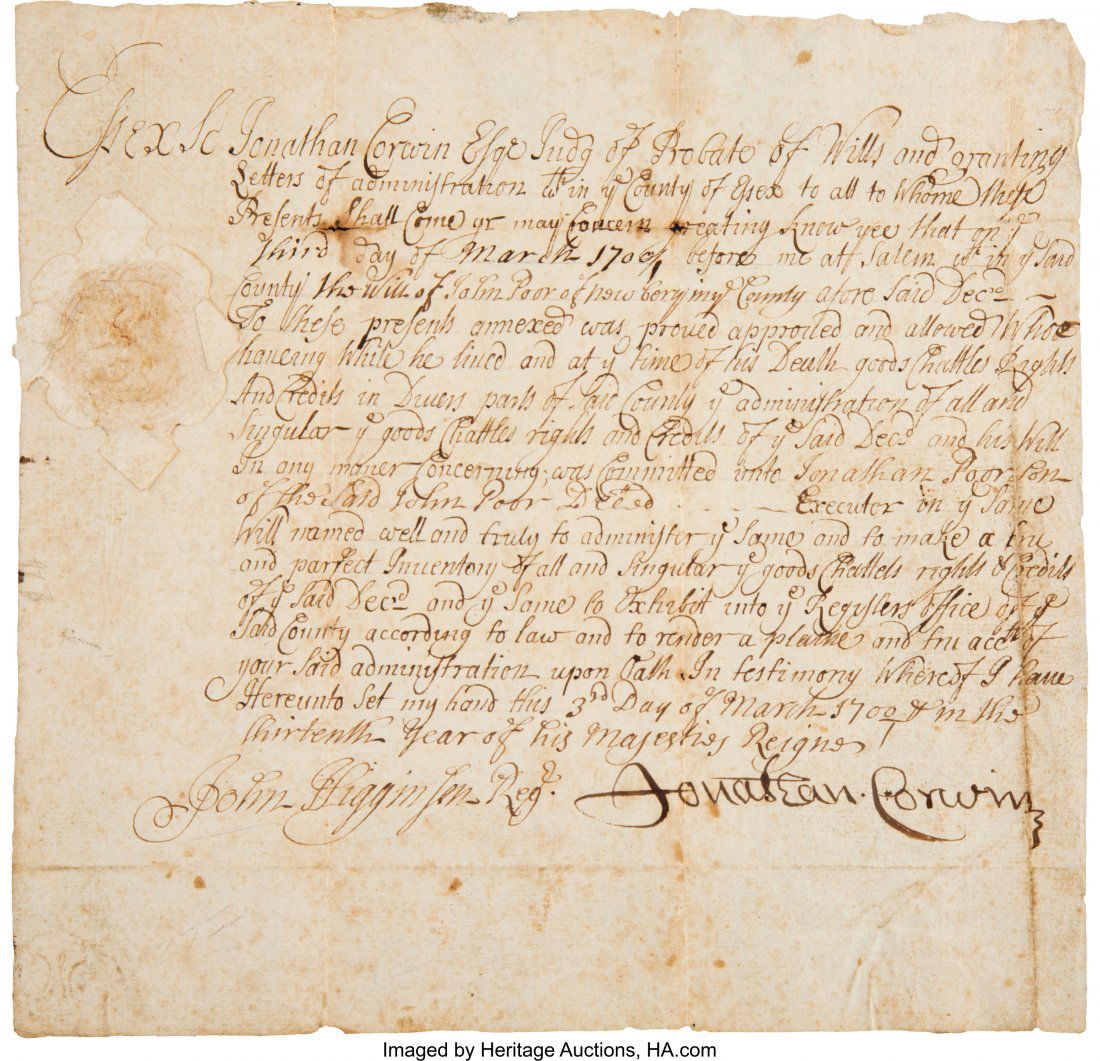 Essex Sc Jonathan Corwin Esqe Judg of Probate of Wills and granting
Letters of administration wth in ye County of Essex to all to Whome these
Presents Shall Come or may Concern Greating know yee that on ye
Third day of March 1700/1 before me att Salem wth in ye Said
County the Will of John Poor of newbery in ye County afore Said Decd
To these presents annexed was proved approved and allowed Whoe
haueing While he lived and at ye time of his Death goods Chattles Rights
And Credits in Divers parts of Said County ye administration of all and
Singular ye goods Chattles rights and Credits of ye Said Decd and his Will
In any maner Concerning was Committed unto Jonathan Poor Son
of the Said John Poor Deceed Executor in ye Same
Will named well and truly to administer ye Same and to make a tru
and parfect Inventory of all and Singular ye goods Chattels rights & Credits
of ye Said Decd and ye Same to Exhibit into ye Registers office of ye
Said County according to law and to render a plaine and tru acctt of
your Said administration upon Oath In testimony Whereof I have
Hereunto Set my hand this 3rd Day of March 1700/1 & in the
thirtenth Year of his Majesties Reigne
John Higginson Regr. Jonathan Corwin
Imaged by Heritage Auctions, HA.com